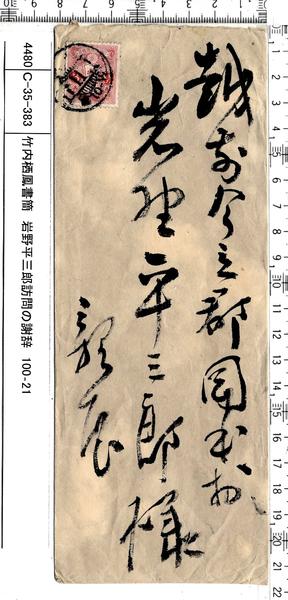 越前今立郡岡本村
岩野平三郎様
親展
4480 C-35-383 竹内栖鳳書簡 岩野平三郎訪問の謝辞 100-21